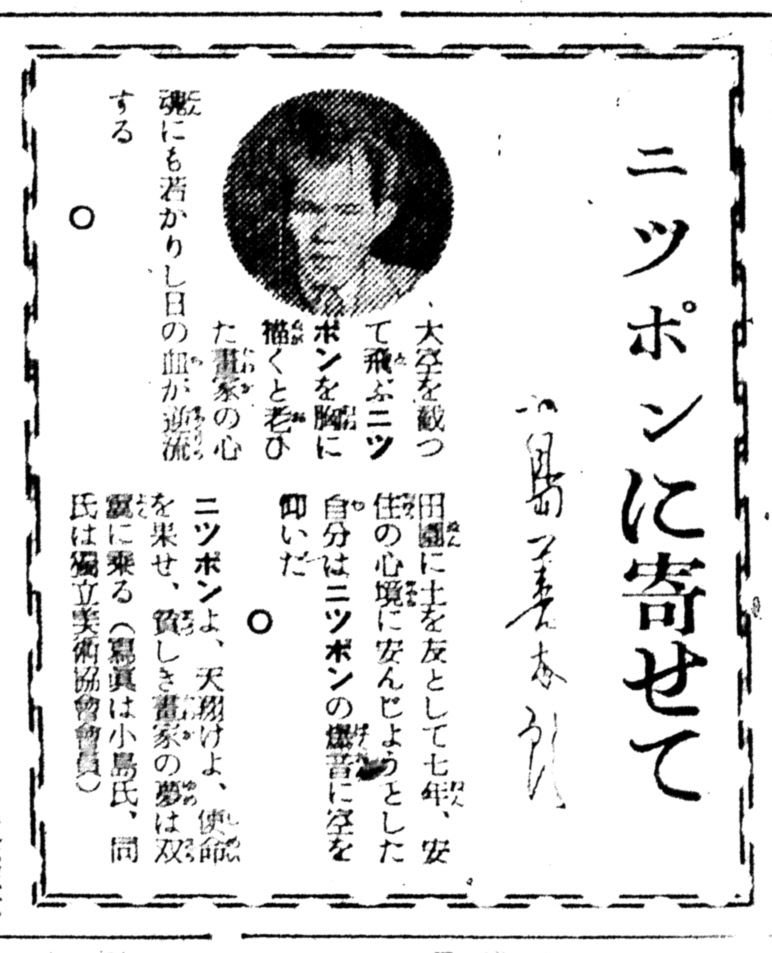 ニツポンに寄せて
小島善太郎
大空を截つ
て飛ぶニツ
ポンを胸に
描くと老ひ
た畫家の心
魂にも若かりし日の血が逆流
する
○
田園に土を友として七年、安
住の心境に安んじようとした
自分はニツポンの爆音に空を
仰いだ
○
ニツポンよ、天翔けよ、使命
を果せ、貧しき畫家の夢は双
翼に乘る（寫眞は小島氏、同
氏は獨立美術協會會員）